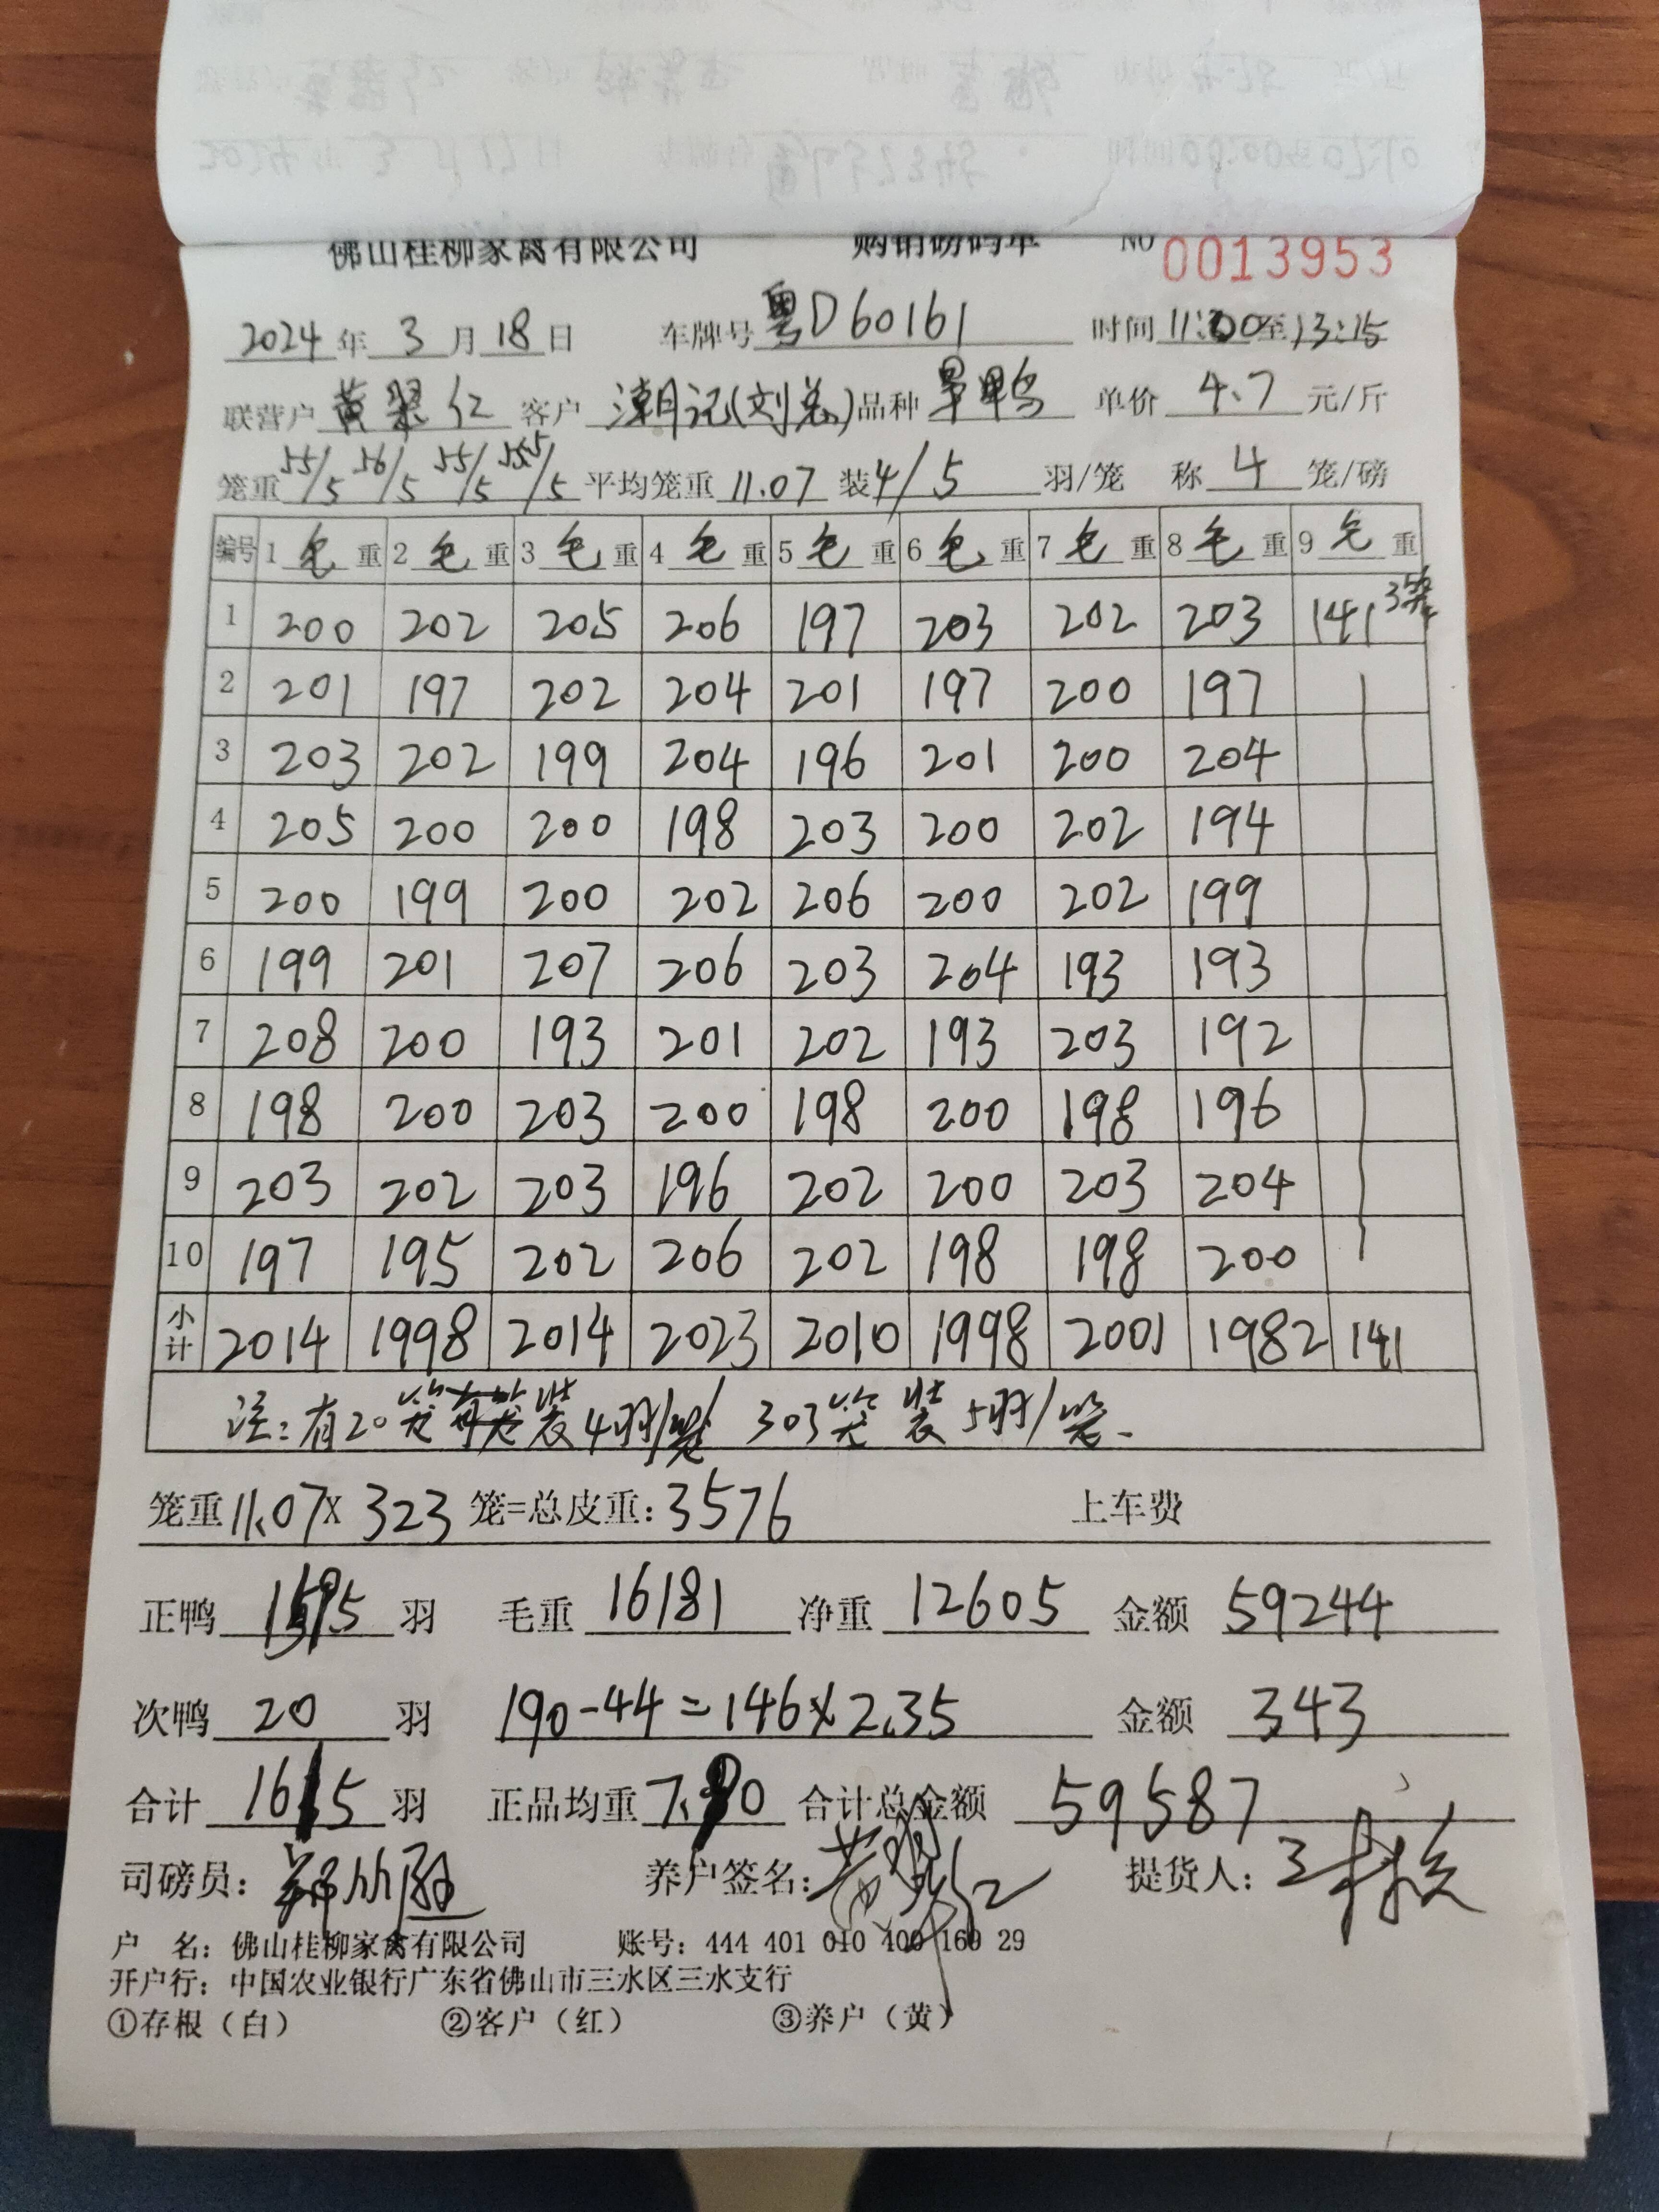 佛山桂柳家禽有限公司 购销磅码单 NO 0013953
2024年3月18日 车牌号粤D60161 时间11:00至13:15
联营户黄翠仁 客户潮记(刘总) 品种旱鸭 单价4.7元/斤
笼重55/5 56/5 55/5 55.5/5 平均笼重11.07 装4/5羽/笼 称4笼/磅
编号 1毛重 2毛重 3毛重 4毛重 5毛重 6毛重 7毛重 8毛重 9毛重
1 200 202 205 206 197 203 202 203 141 3笼
2 201 197 202 204 201 197 200 197
3 203 202 199 204 196 201 200 204
4 205 200 200 198 203 200 202 194
5 200 199 200 202 206 200 202 199
6 199 201 207 206 203 204 193 193
7 208 200 193 201 202 193 203 192
8 198 200 203 200 198 200 198 196
9 203 202 203 196 202 200 203 204
10 197 195 202 206 202 198 198 200
小计 2014 1998 2014 2023 2010 1998 2001 1982 141
注:有20笼装4羽/笼 303笼装5羽/笼.
笼重11.07×323笼=总皮重:3576 上车费
正鸭1595羽 毛重16181 净重12605 金额59244
次鸭20羽 190-44=146×2.35 金额343
合计1615羽 正品均重7.90 合计总金额59587
司磅员: 养户签名: 提货人:
户 名:佛山桂柳家禽有限公司 账号:444 401 010 400 160 29
开户行:中国农业银行广东省佛山市三水区三水支行
①存根(白) ②客户(红) ③养户(黄)